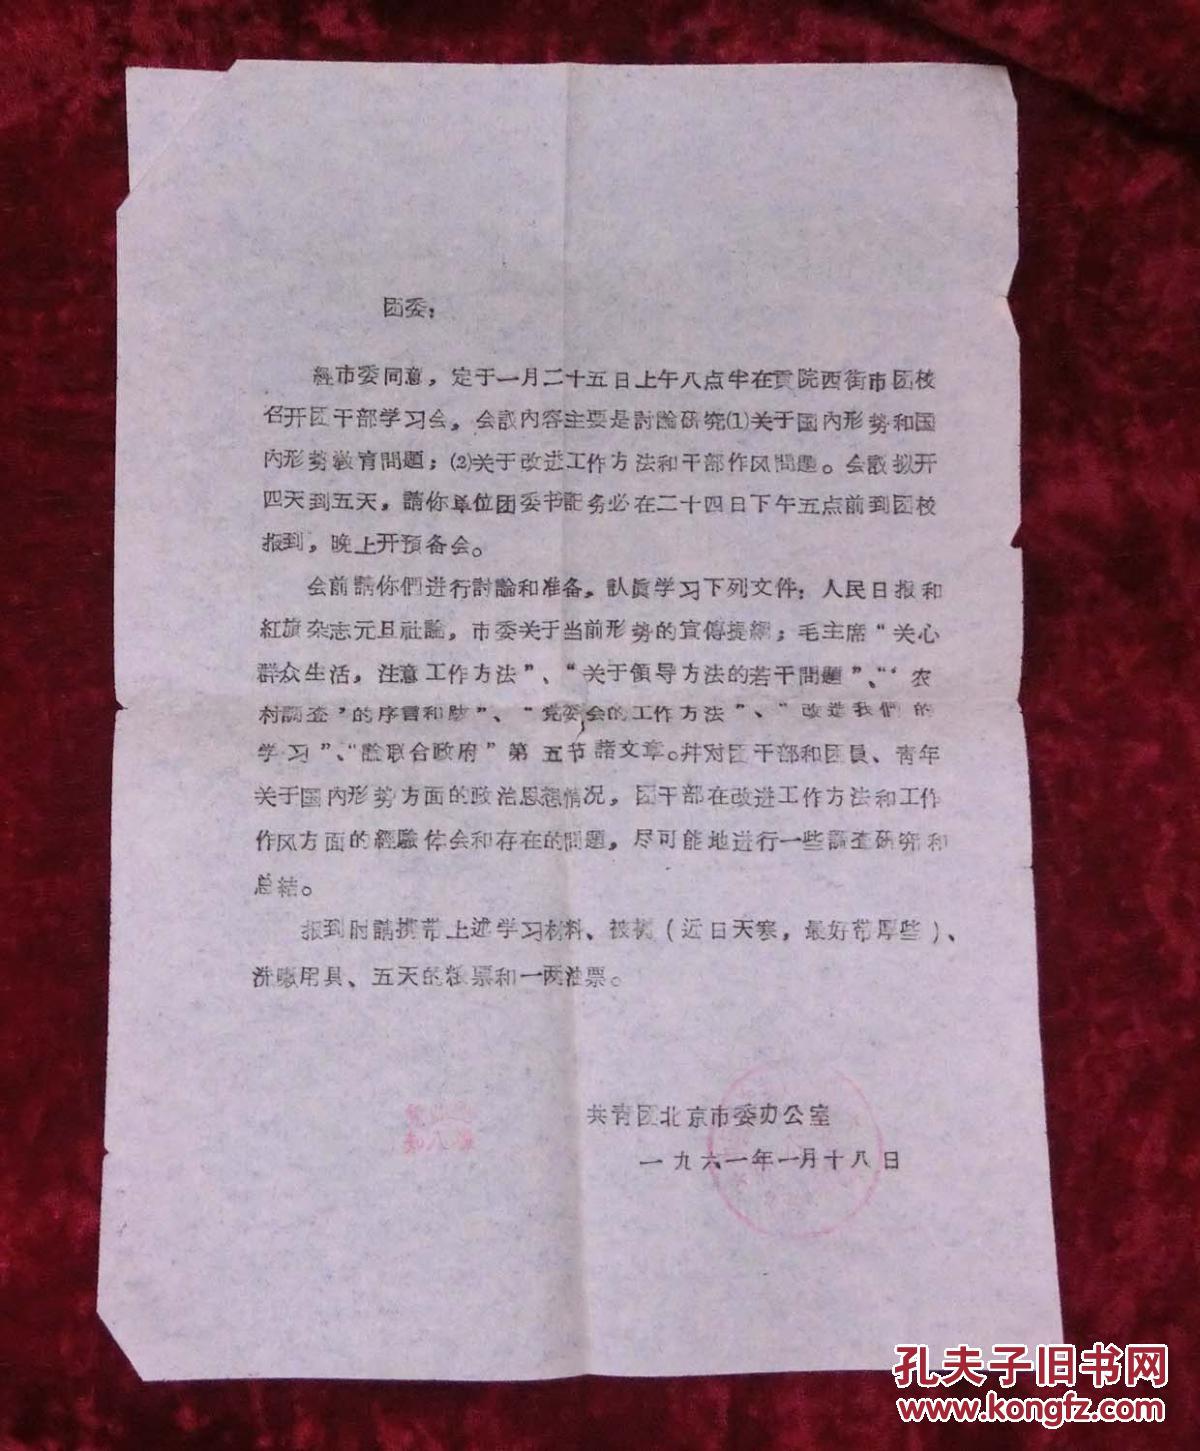 团委：
經市委同意，定于一月二十五日上午八点半在貢院西街市团校
召开团干部学习会，会議內容主要是討論研究(1)关于国內形势和国
內形势教育問題；(2)关于改进工作方法和干部作风問題。会議拟开
四天到五天，請你单位团委书記务必在二十四日下午五点前到团校
报到，晚上开預备会。
会前請你們进行討論和准备，认眞学习下列文件：人民日报和
紅旗杂志元旦社論，市委关于当前形势的宣傳提綱；毛主席“关心
群众生活，注意工作方法”、“关于領导方法的若干問題”、“‘农
村調查’的序言和跋”、“党委会的工作方法”、“改造我們的
学习”、“論联合政府”第五节諸文章。并对团干部和团員、青年
关于国內形势方面的政治思想情况，团干部在改进工作方法和工作
作风方面的經驗体会和存在的問題，尽可能地进行一些調查研究和
总結。
报到时請携带上述学习材料、被褥（近日天寒，最好带厚些）、
洗漱用具、五天的粮票和一两油票。
共青团北京市委办公室
一九六一年一月十八日
孔夫子旧书网
www.kongfz.com